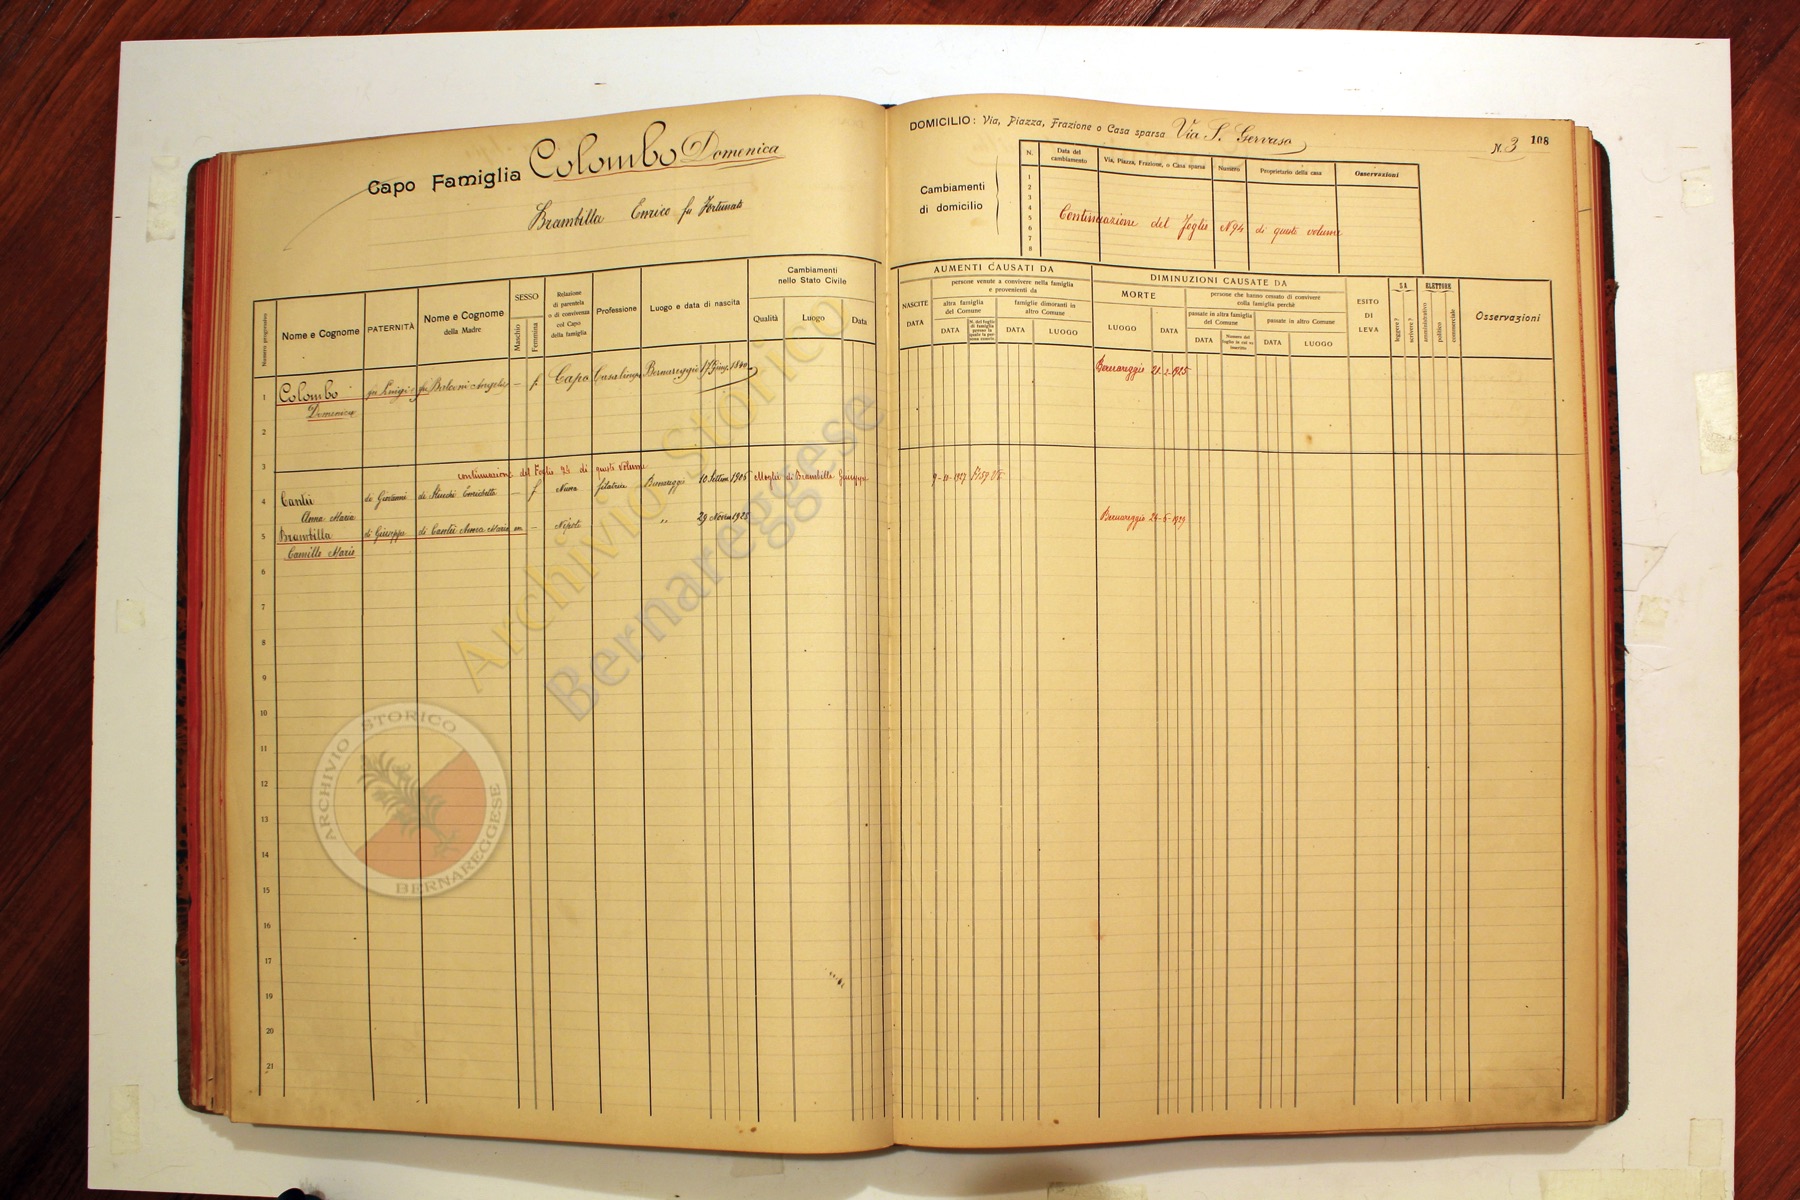 Capo Famiglia Colombo Domenica
Brambilla Enrico fu Fortunato
DOMICILIO: Via, Piazza, Frazione o Casa sparsa Via S. Gervaso
N. 3
108
Cambiamenti
di domicilio
N. Data del cambiamento Via, Piazza, Frazione, o Casa sparsa Numero Proprietario della casa Osservazioni
1
2
3
4
5
6
7
8
Continuazione del Foglio N 94 di questo volume
Numero progressivo
Nome e Cognome
PATERNITÀ
Nome e Cognome
della Madre
SESSO
Maschio
Femmina
Relazione
di parentela
o di convivenza
col Capo
della famiglia
Professione
Luogo e data di nascita
Cambiamenti
nello Stato Civile
Qualità
Luogo
Data
AUMENTI CAUSATI DA
NASCITE
DATA
persone venute a convivere nella famiglia
e provenienti da
altra famiglia
del Comune
DATA
famiglie dimoranti in
altro Comune
DATA
LUOGO
DIMINUZIONI CAUSATE DA
MORTE
LUOGO
DATA
persone che hanno cessato di convivere
colla famiglia perchè
passate in altra famiglia
del Comune
DATA
passate in altro Comune
DATA
LUOGO
ESITO
DI
LEVA
SA
leggere?
scrivere?
ELETTORE
amministrativo
politico
commerciale
Osservazioni
1 Colombo fu Luigi fu Balconi Angela - f. Capo Casalinga Bernareggio 17 Giug. 1840 Bernareggio 21-2-1925
Domenica
2
3
continuazione del Foglio 94 di questo volume
4 Cantù di Giovanni di Stucchi Enrichetta - f Nuora filatrice Bernareggio 10 Settem 1905 Moglie di Brambilla Giuseppe
Anna Maria
5 Brambilla di Giuseppe di Cantù Anna Maria m - Nipote " 29 Novem 1928 Bernareggio 24-6-1929
Camillo Mario
6
7
8
9
10
11
12
13
14
15
16
17
18
19
20
21
Archivio Storico
Bernareggese
ARCHIVIO STORICO
BERNAREGGESE